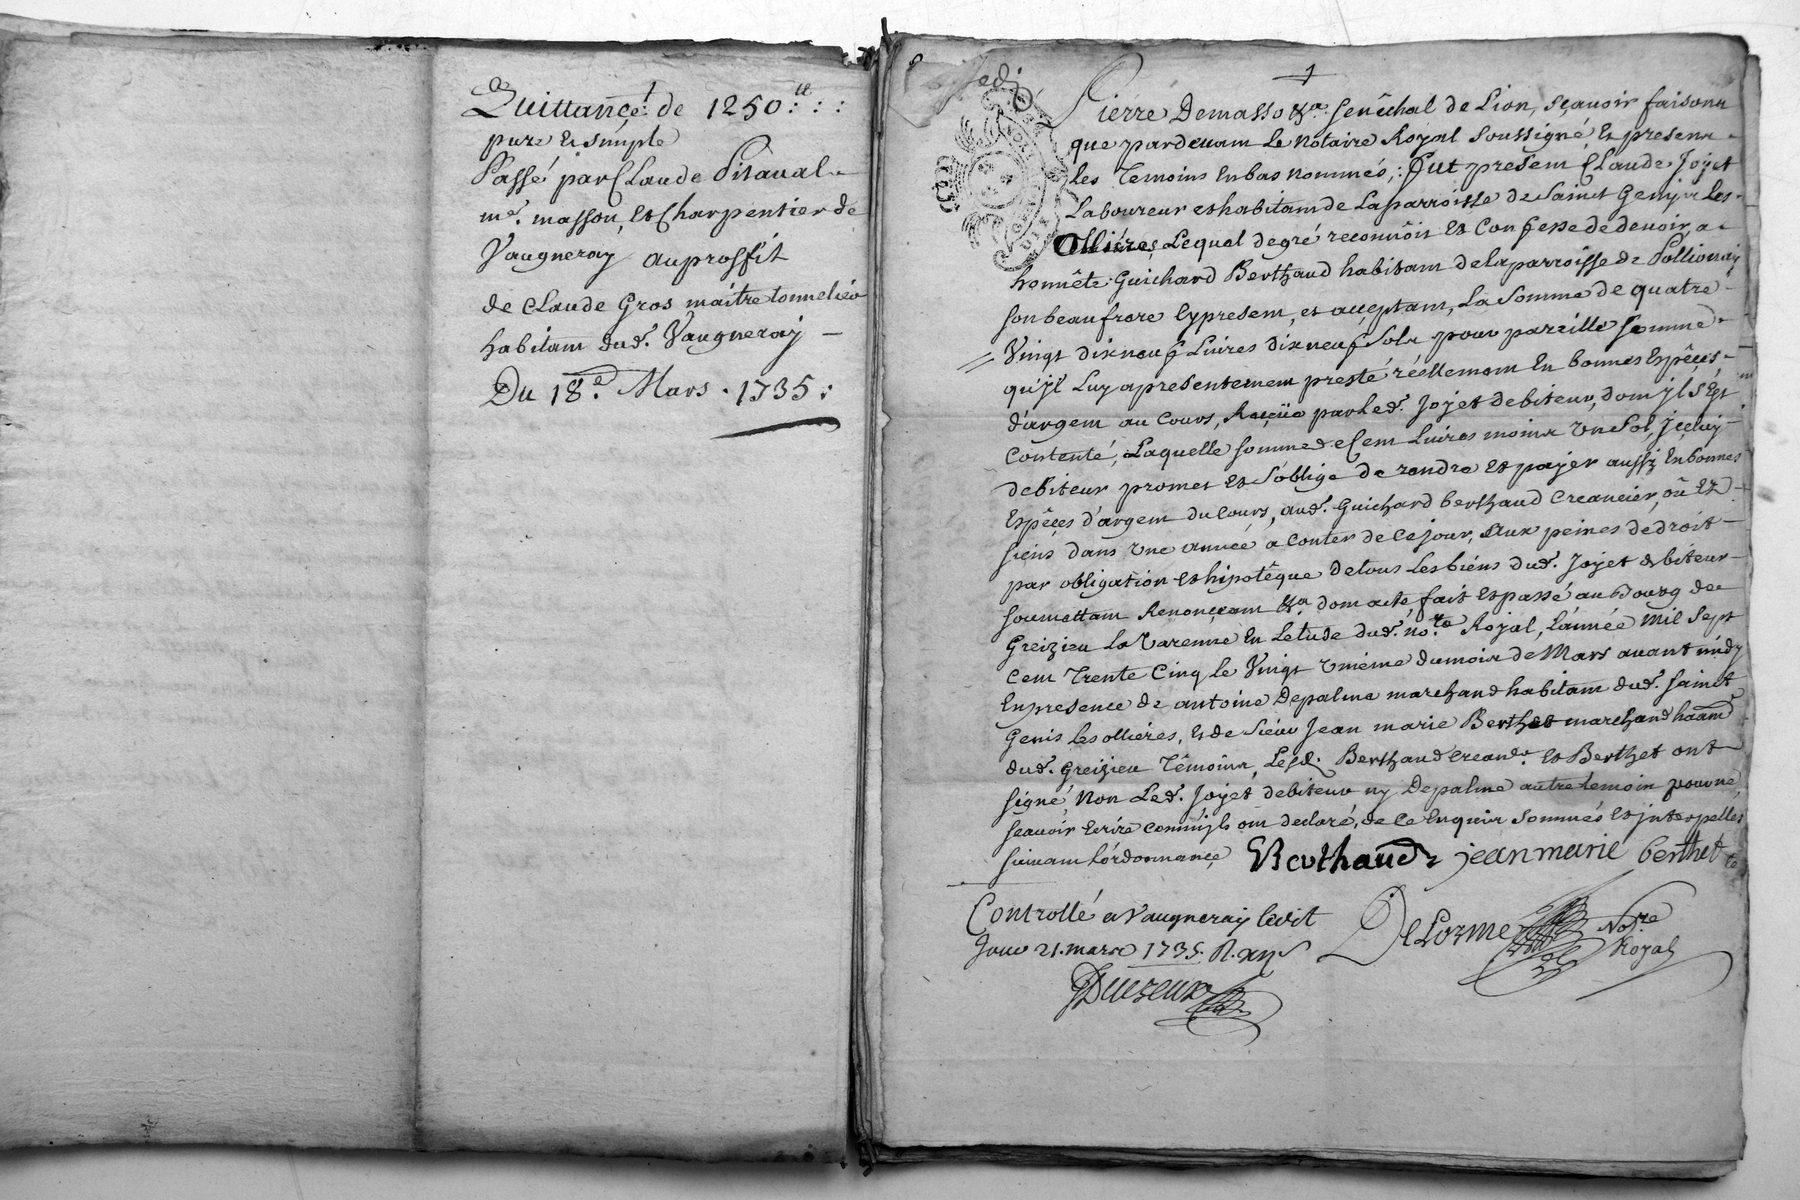 Quittance de 1250ᵗᵗ : :
pure et simple
Passé par Claude Pitaval
mᵉ. masson, et Charpentier de
Vaugneray au proffit
de Claude Gros maitre tonnelier
habitant dud. Vaugneray
Du 18.ᵉ Mars . 1735 :
Pierre Demasso &ᵃ. senêchal de Lion, sçavoir faisons
que pardevant le Notaire Royal soussigné, et presens
les Temoins en bas nommés, : fut present Claude Joyet
Laboureur et habitant de La parroisse de Sainct Genyr Les
Ollières, Lequel de gré reconnôit et Confesse de devoir, a
honnête Guichard Berthaud habitant de la parroisse de Pollionay
son beau frere Cy present, et acceptant, La Somme de quatre
Vingt dix neuf Livres dix neuf Sols pour pareille Somme
qu'jl Luy a presentement presté réellement En bonnes Espêces
d'argent au cours, Reçüe par Led. Joyet debiteur, dont jl s'Est
Contenté, Laquelle somme de Cent Livres moins un Sol, jceluy
debiteur promet et s'oblige de rendre et payer aussy En bonnes
Espêces d'argent du Cours, aud. Guichard Berthaud Creancier, oû Ez
siens dans une année a Conter de Ce jour, Aux peines de droit
par obligation et hipotêque de tous Les biens dud. Joyet debiteur
soumettant Renonçant &ᵃ. dont acte fait et passé au Bourg de
Greizieu la Varenne En L'etude dud. noʳᵉ Royal, L'année Mil Sept
Cent Trente Cinq le Vingt Unième du mois de Mars avant midy
En presence de antoine Depalme marchand habitant dud. Sainct
Genis les ollières, et de Sieur Jean marie Berthet marchand haant
dud. Greizieu Têmoins, Lesd. Berthaud Crean.ʳ et Berthet ont
signé, Non Led. Joyet debiteur ny Depalme autre temoin pour ne
sçavoir Ecrire Comm'jls ont declaré, de Ce Enquis Sommés et jnterpellés
suivant L'ordonnance Berthaud jean marie berthet
Controllé a Vaugneray ledit
Jour 21. mars 1735. R. xijˢ
DeLorme Noʳᵉ
Royal